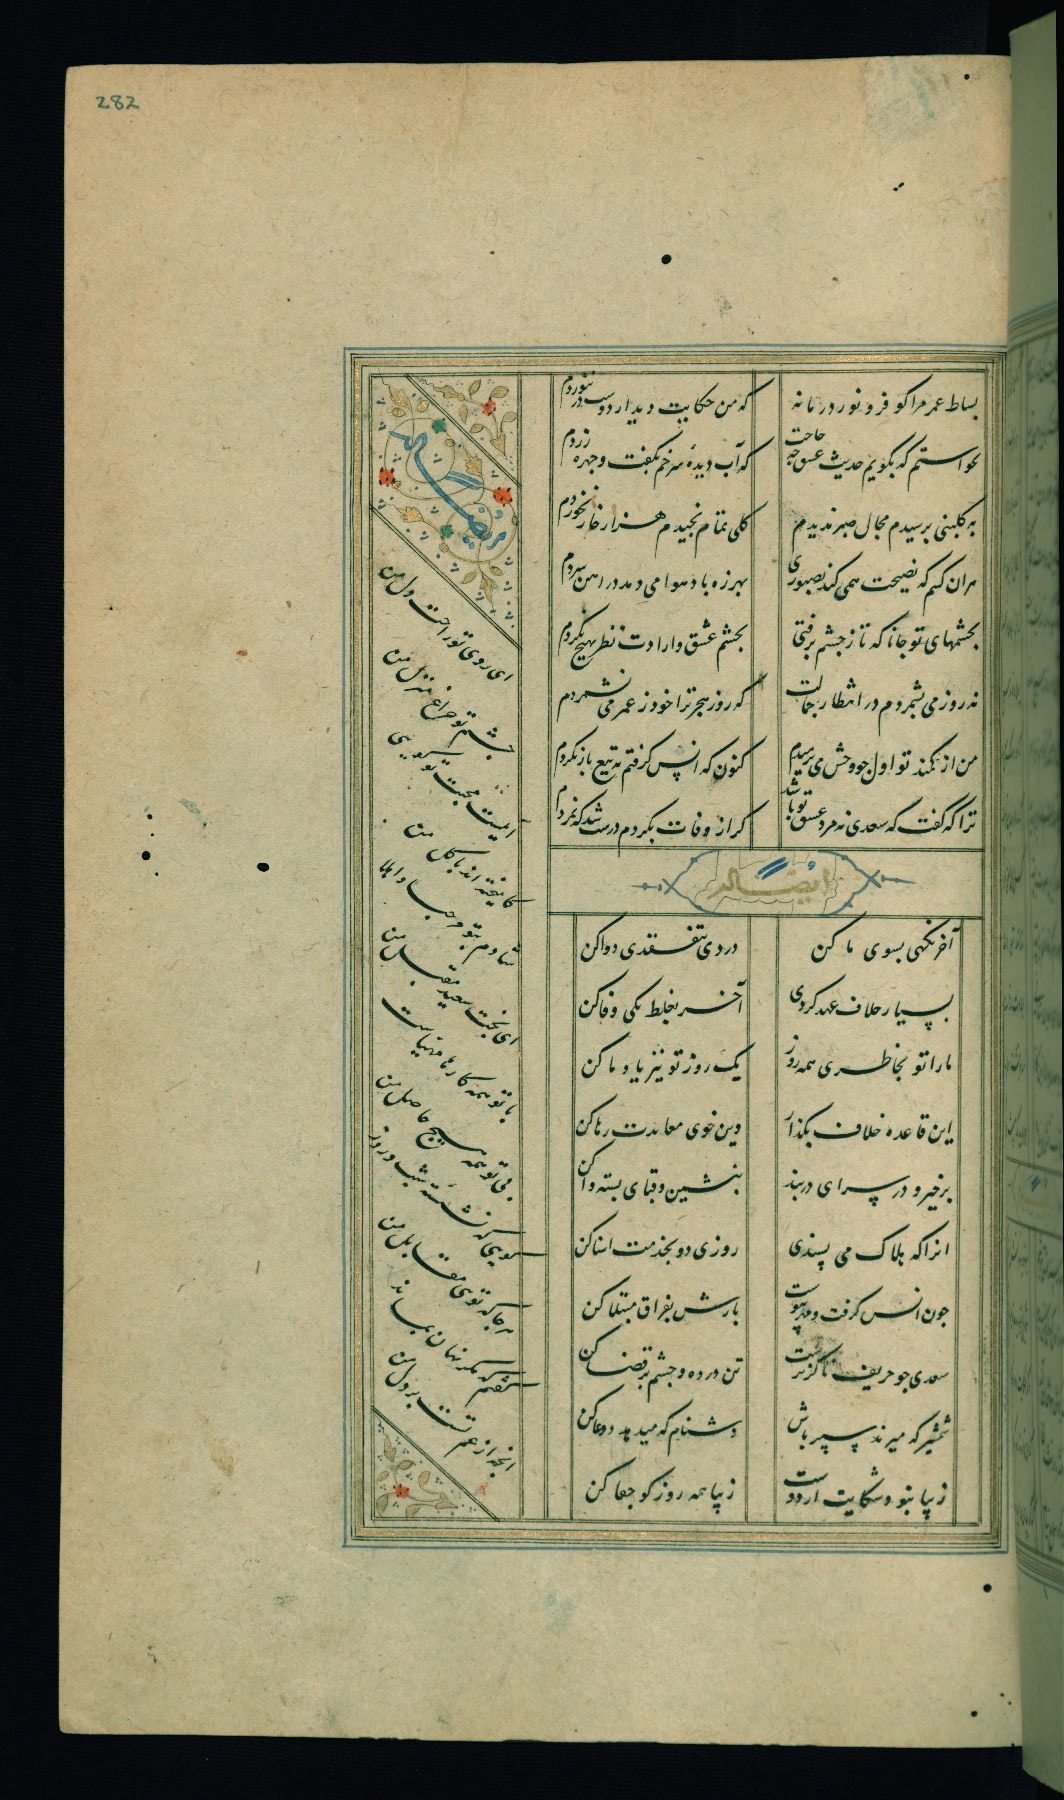 282
بساط عمر مرا کو فرو نورد زمانه که من حکایت دیدار دوست در ننوردم
بخواستم که بگویم حدیث عشق چه حاجت که آب دیدهٔ سرخم بگفت و چهره زردم
به گلبنی برسیدم مجال صبر ندیدم گلی تمام نچیدم هزار خار بخوردم
هران کسم که نصیحت همی کند بصبوری بهرزه باد هوا می دمد در اهن سردم
بچشمهای تو جانا که تا ز چشم برفتی بچشم عشق و ارادت نظر بهیچ نکردم
نه روز می بشمردم در انتظار جمالت که روز هجر ترا خود ز عمر می نشمردم
من از کمند تو اول چو وحش می برمیدم کنون که انس گرفتم به تیغ باز نگردم
ترا که گفت که سعدی نه مرد عشق تو باشد کر از وفات بگردم درست شد که نه مردم
ایضاله
آخر نگهی بسوی ما کن دردی بتفقدی دوا کن
بسیار خلاف عهد کردی آخر بغلط یکی وفا کن
ما را تو بخاطری همه روز یک روز تو نیز یاد ما کن
این قاعده خلاف بگذار وین خوی معاندت رها کن
برخیز و در سرای دربند بنشین و قبای بسته وا کن
انرا که هلاک می پسندی روزی دو بخدمت اشنا کن
چون انس گرفت و مهر پیوست بازش بفراق مبتلا کن
سعدی چو حریف ناگزیرست تن در ده و چشم بر قضا کن
شمشیر که میزند سپر باش دشنام که میدهد دعا کن
زیبا نبود شکایت از دوست زیبا همه روز کو جفا کن
ای روی تو راحت دل من
چشم تو چراغ منزل من
آبیست محبت تو گویی
کامیخته اند با گل من
شادم بتو مرحبا و اهلا
ای بخت سعید مقبل من
با تو همه کارها مهیاست
بی تو همه هیچ حاصل من
گویی که نشسته شب و روز
هر جا که توی مقابل من
گفتم که مگر نهان بماند
انچه از غم تست بر دل من